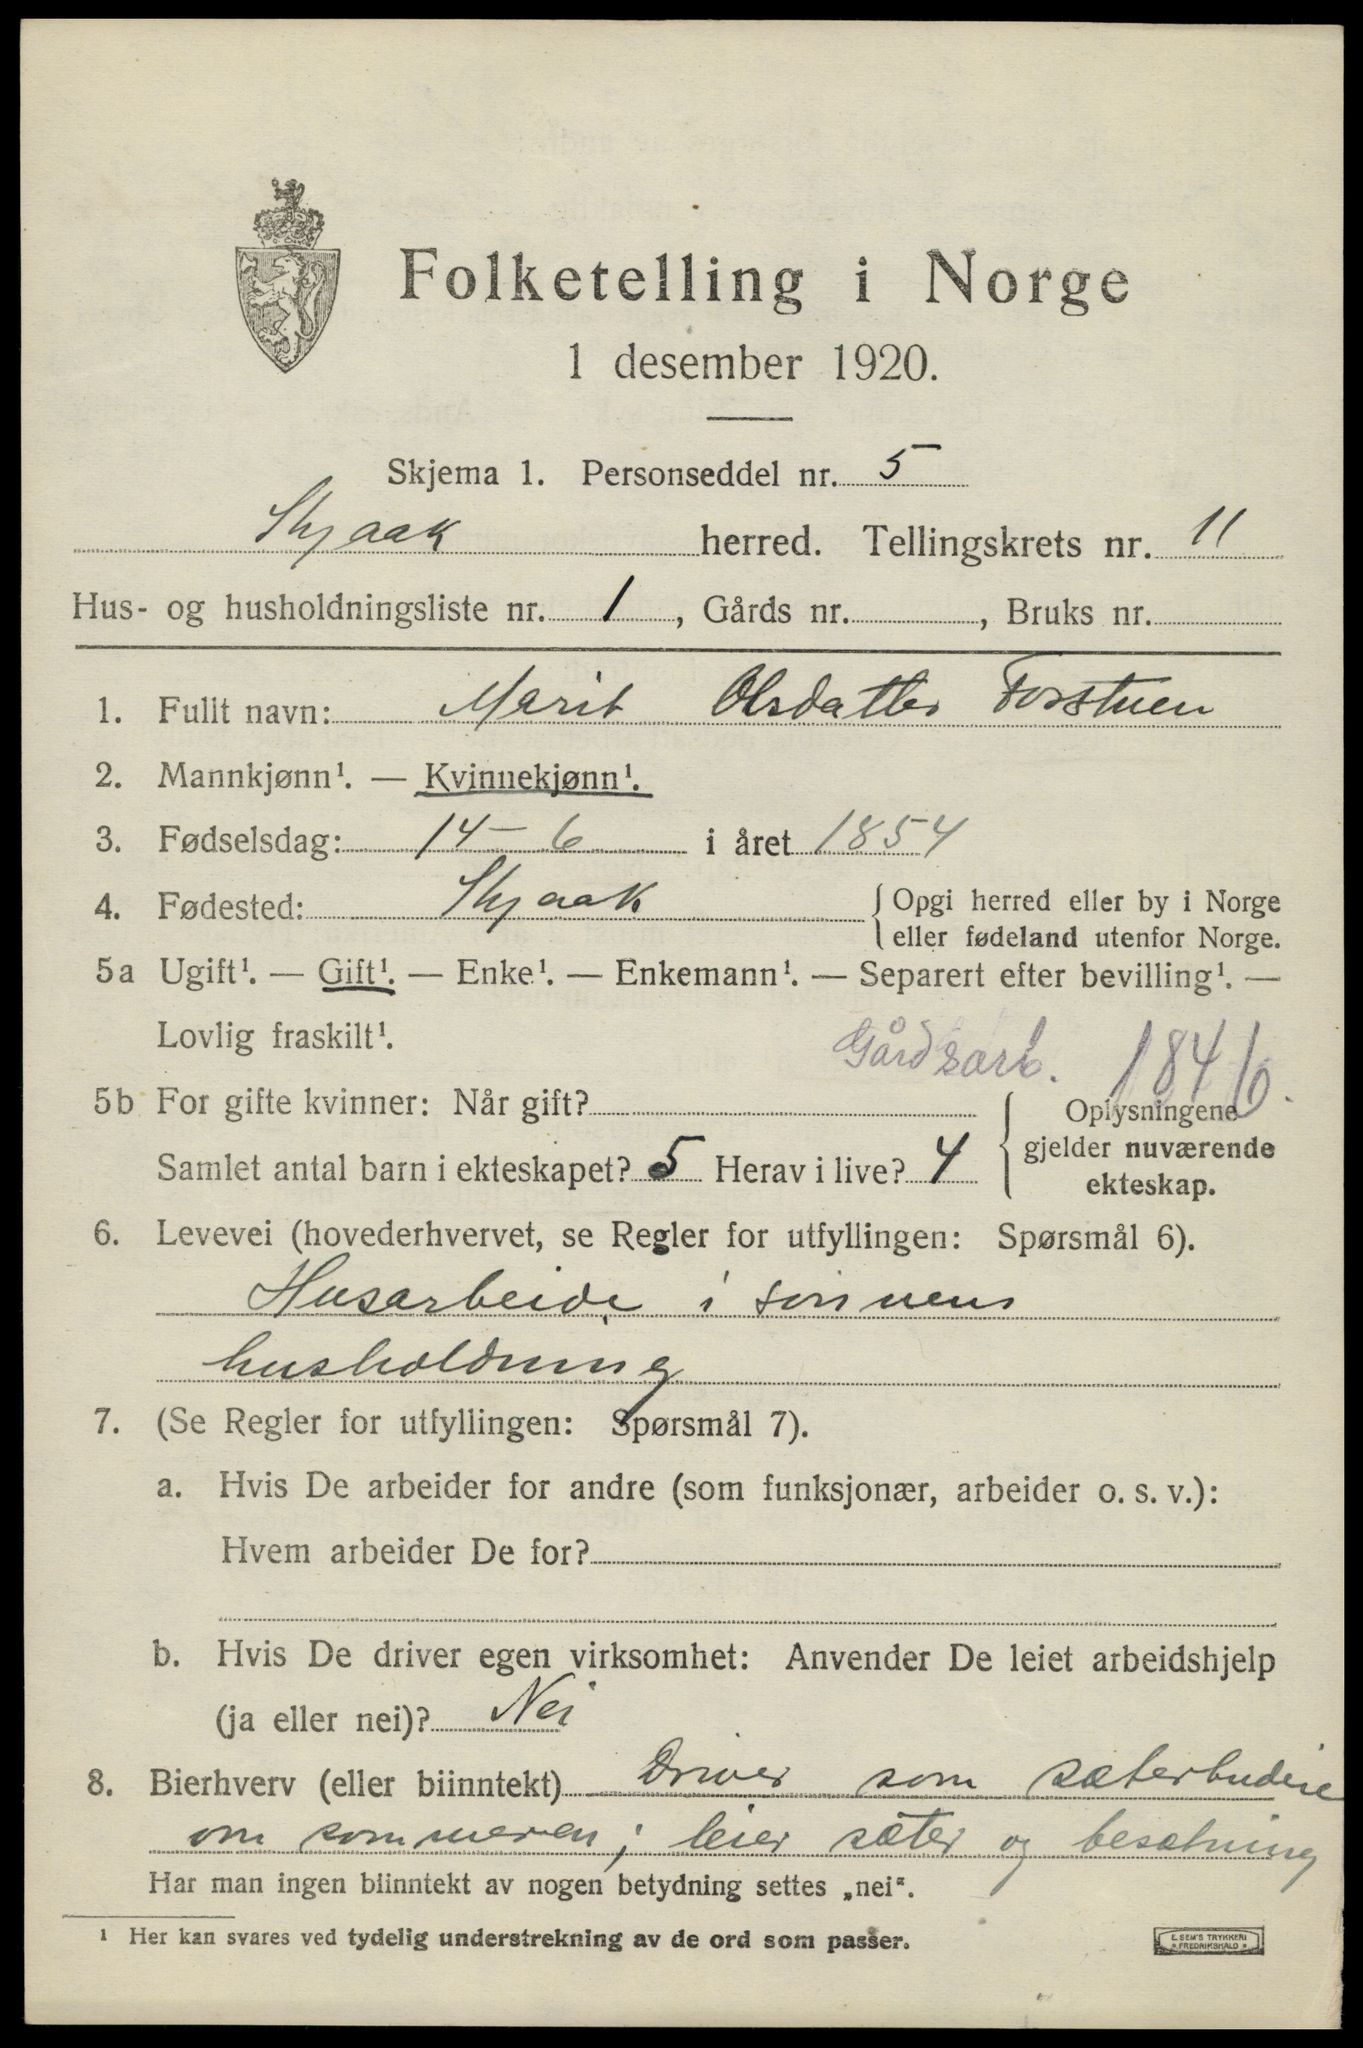 Folketelling i Norge
1 desember 1920.
Skjema 1. Personseddel nr. 5
Skjaak herred. Tellingskrets nr. 11
Hus- og husholdningsliste nr. 1, Gårds nr. , Bruks nr.
1. Fullt navn: Marit Olsdatter Forstuen
2. Mannkjønn¹. — Kvinnekjønn¹.
3. Fødselsdag: 14-6 i året 1854
4. Fødested: Skjaak { Opgi herred eller by i Norge
eller fødeland utenfor Norge.
5a Ugift¹. — Gift¹. — Enke¹. — Enkemann¹. — Separert efter bevilling¹. —
Lovlig fraskilt¹.
Gårdsarb. 1846.
5b For gifte kvinner: Når gift?
Samlet antal barn i ekteskapet? 5 Herav i live? 4
{ Oplysningene
gjelder nuværende
ekteskap.
6. Levevei (hovederhvervet, se Regler for utfyllingen: Spørsmål 6).
Husarbeide i sønnens
husholdning
7. (Se Regler for utfyllingen: Spørsmål 7).
a. Hvis De arbeider for andre (som funksjonær, arbeider o. s. v.):
Hvem arbeider De for?
b. Hvis De driver egen virksomhet: Anvender De leiet arbeidshjelp
(ja eller nei)? Nei
8. Bierhverv (eller biinntekt) Driver som sæterbudeie
om sommeren; leier sæter og besætning
Har man ingen biinntekt av nogen betydning settes „nei".
¹ Her kan svares ved tydelig understrekning av de ord som passer.
E. SEM'S TRYKKERI
FREDRIKSHALD